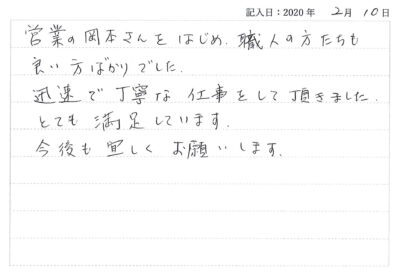 記入日：2020年 2月 10日
営業の岡本さんをはじめ、職人の方たちも
良い方ばかりでした。
迅速で丁寧な仕事をして頂きました。
とても満足しています。
今後も宜しくお願いします。